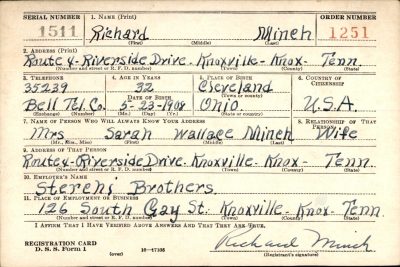 SERIAL NUMBER 1. NAME (Print) ORDER NUMBER
1511 Richard Minch 1251
(First) (Middle) (Last)
2. ADDRESS (Print)
Route 4-Riverside Drive. Knoxville-Knox- Tenn.
(Number and street or R. F. D. number) (Town) (County) (State)
3. TELEPHONE 4. AGE IN YEARS 5. PLACE OF BIRTH 6. COUNTRY OF CITIZENSHIP
35239 32 Cleveland
DATE OF BIRTH (Town or county)
Bell Tel. Co. 5-23-1908 Ohio. U.S.A.
(Exchange) (Number) (Mo.) (Day) (Yr.) (State or country)
7. NAME OF PERSON WHO WILL ALWAYS KNOW YOUR ADDRESS 8. RELATIONSHIP OF THAT PERSON
Mrs Sarah Wallace Minch Wife
(Mr., Mrs., Miss) (First) (Middle) (Last)
9. ADDRESS OF THAT PERSON
Route 4-Riverside Drive. Knoxville- Knox- Tenn.
(Number and street or R. F. D. number) (Town) (County) (State)
10. EMPLOYER'S NAME
Brothers
11. PLACE OF EMPLOYMENT OR BUSINESS
126 South Gay St. Knoxville-Knox-Tenn.
(Number and street or R. F. D. number) (Town) (County) (State)
I AFFIRM THAT I HAVE VERIFIED ABOVE ANSWERS AND THAT THEY ARE TRUE.
REGISTRATION CARD
D. S. S. Form 1 (over) 16-17105 Richard Minch
(Registrant's signature)